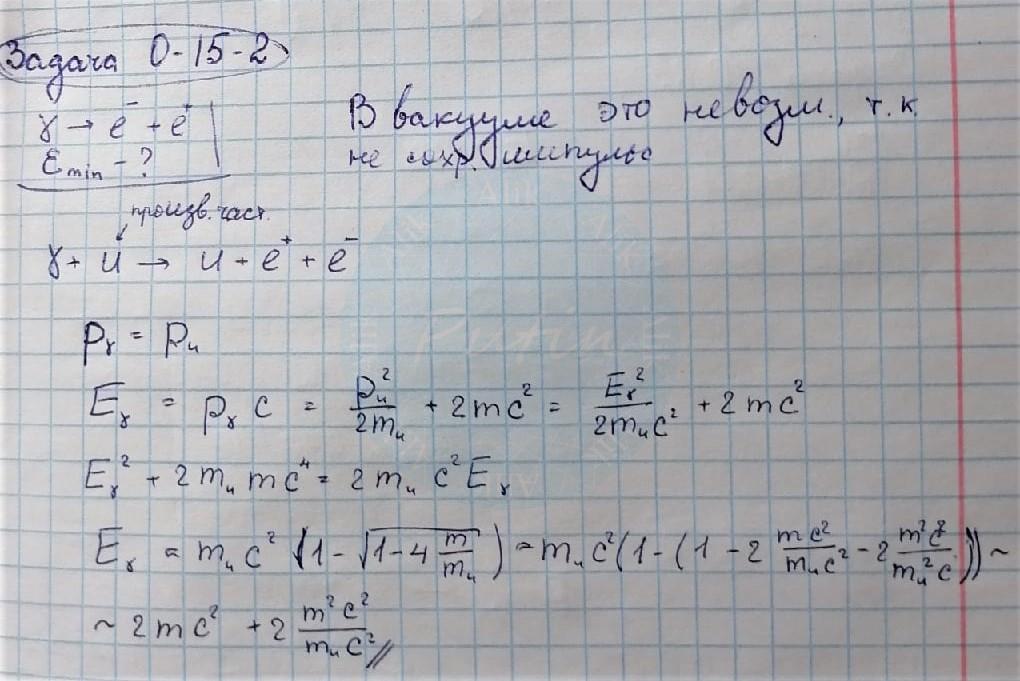 Задача 0-15-2
γ → e⁻ + e⁺
Emin - ?
В вакууме это невозм., т.к.
не сохр. импульс
произв. част.
γ + и → и + e⁺ + e⁻
pγ = pи
Eγ = pγ c = pи²/2mи + 2mc² = Eγ²/2mиc² + 2mc²
Eγ² + 2mи mc⁴ = 2mи c² Eγ
Eγ = mи c² (1 - √(1 - 4 m/mи)) = mи c² (1 - (1 - 2 mc²/mиc² - 2 m²c²/mи²c)) ~
~ 2mc² + 2 m²c²/mиc² //